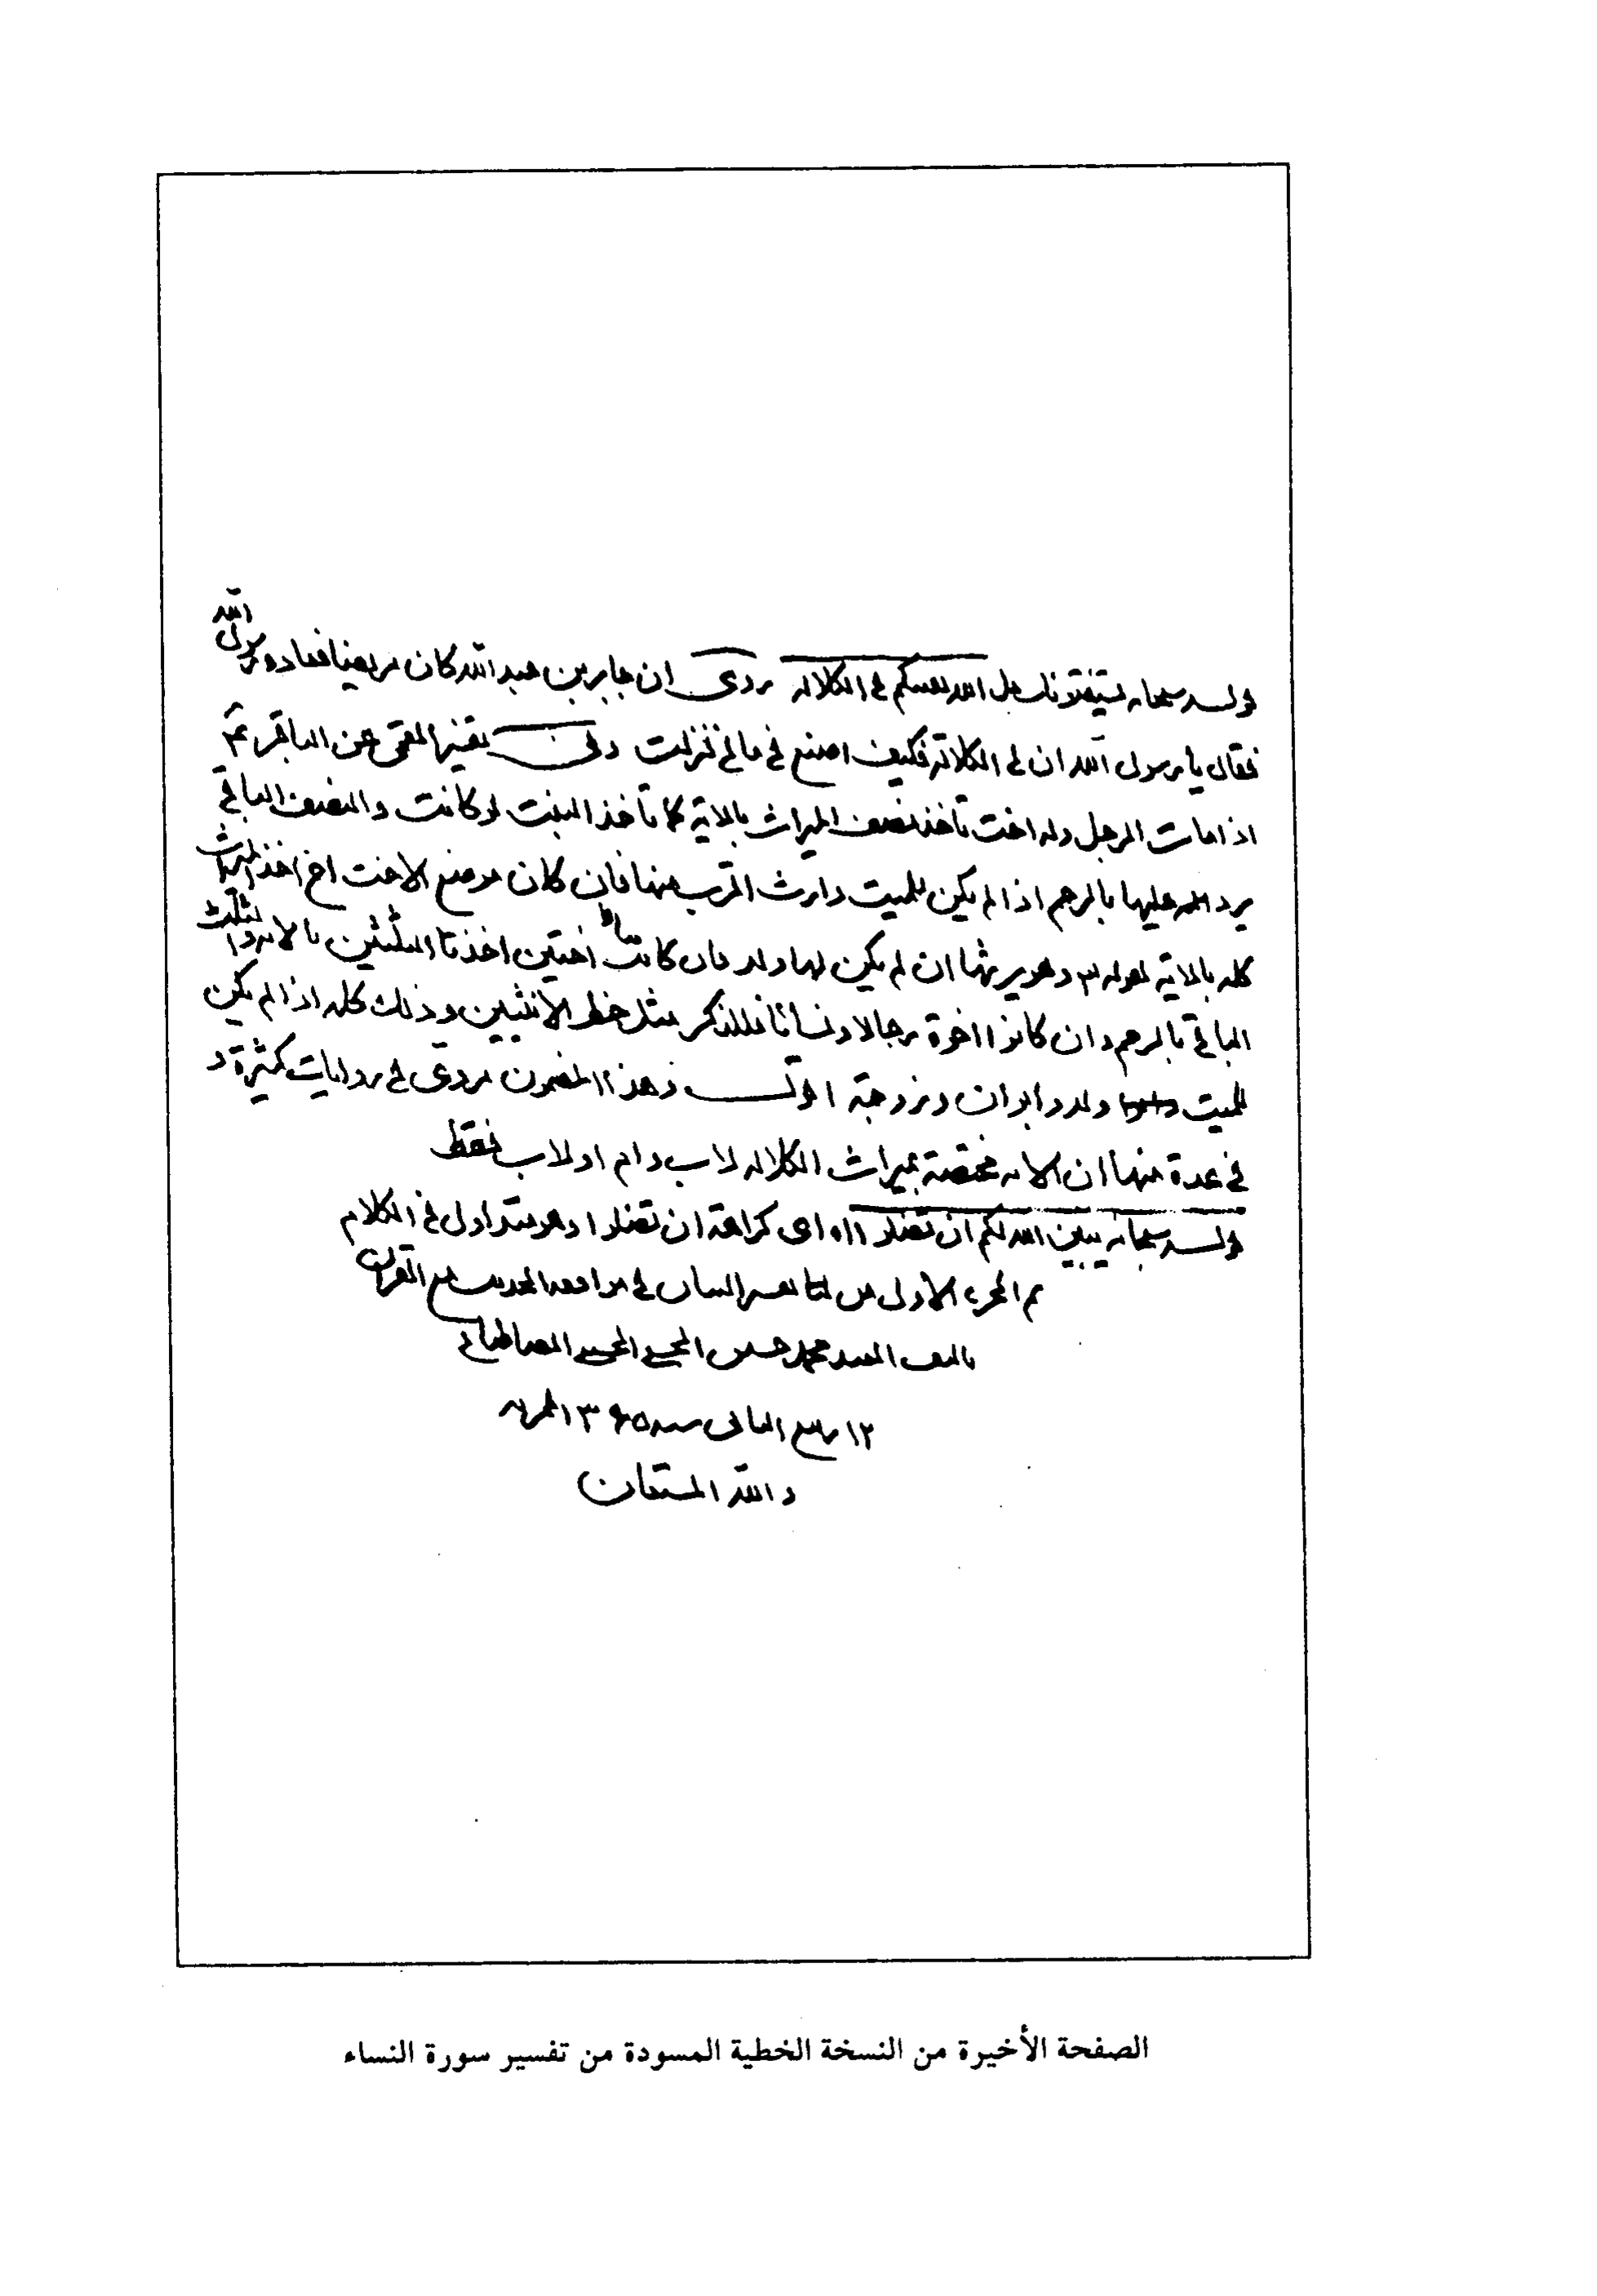 قوله سبحانه يستفتونك قل الله يفتيكم في الكلالة روى ان جابر بن عبد الله كان مريضا فعاده رسول الله
فقال يا رسول الله ان لي الكلالة فكيف اصنع في مالي فنزلت وفي تفسير القمي عن الباقر ع
اذا مات الرجل وله اخت تأخذ نصف الميراث بالاية كما تأخذ البنت لو كانت والنصف الباقي
يرد عليها بالرحم اذا لم يكن للميت وارث اقرب منها فان كان موضع الاخت اخ اخذ الميراث
كله بالاية لقوله وهو يرثها ان لم يكن لها ولد فان كانتا اختين اخذتا الثلثين بالاية والثلث
الباقي بالرحم وان كانوا اخوة رجالا ونساءا فللذكر مثل حظ الأنثيين وذلك كله اذا لم يكن
للميت ولد وابوان وزوجة اقول وهذا المضمون مروى في روايات كثيرة و
في عدة منها ان الاية مختصة بميراث الكلالة لاب وام او لاب فقط
قوله سبحانه يبين الله لكم ان تضلوا اه اى كراهة ان تضلوا وهو متداول في الكلام
تم الجزء الأول من تفسير البيان في موافقة الحديث مع القرآن
تاليف السيد محمد حسين الحسني الحسيني الطباطبائي
١٢ ربيع الثاني سنه ١٣٦٥ هجريه
والله المستعان
الصفحة الأخيرة من النسخة الخطية المسودة من تفسير سورة النساء